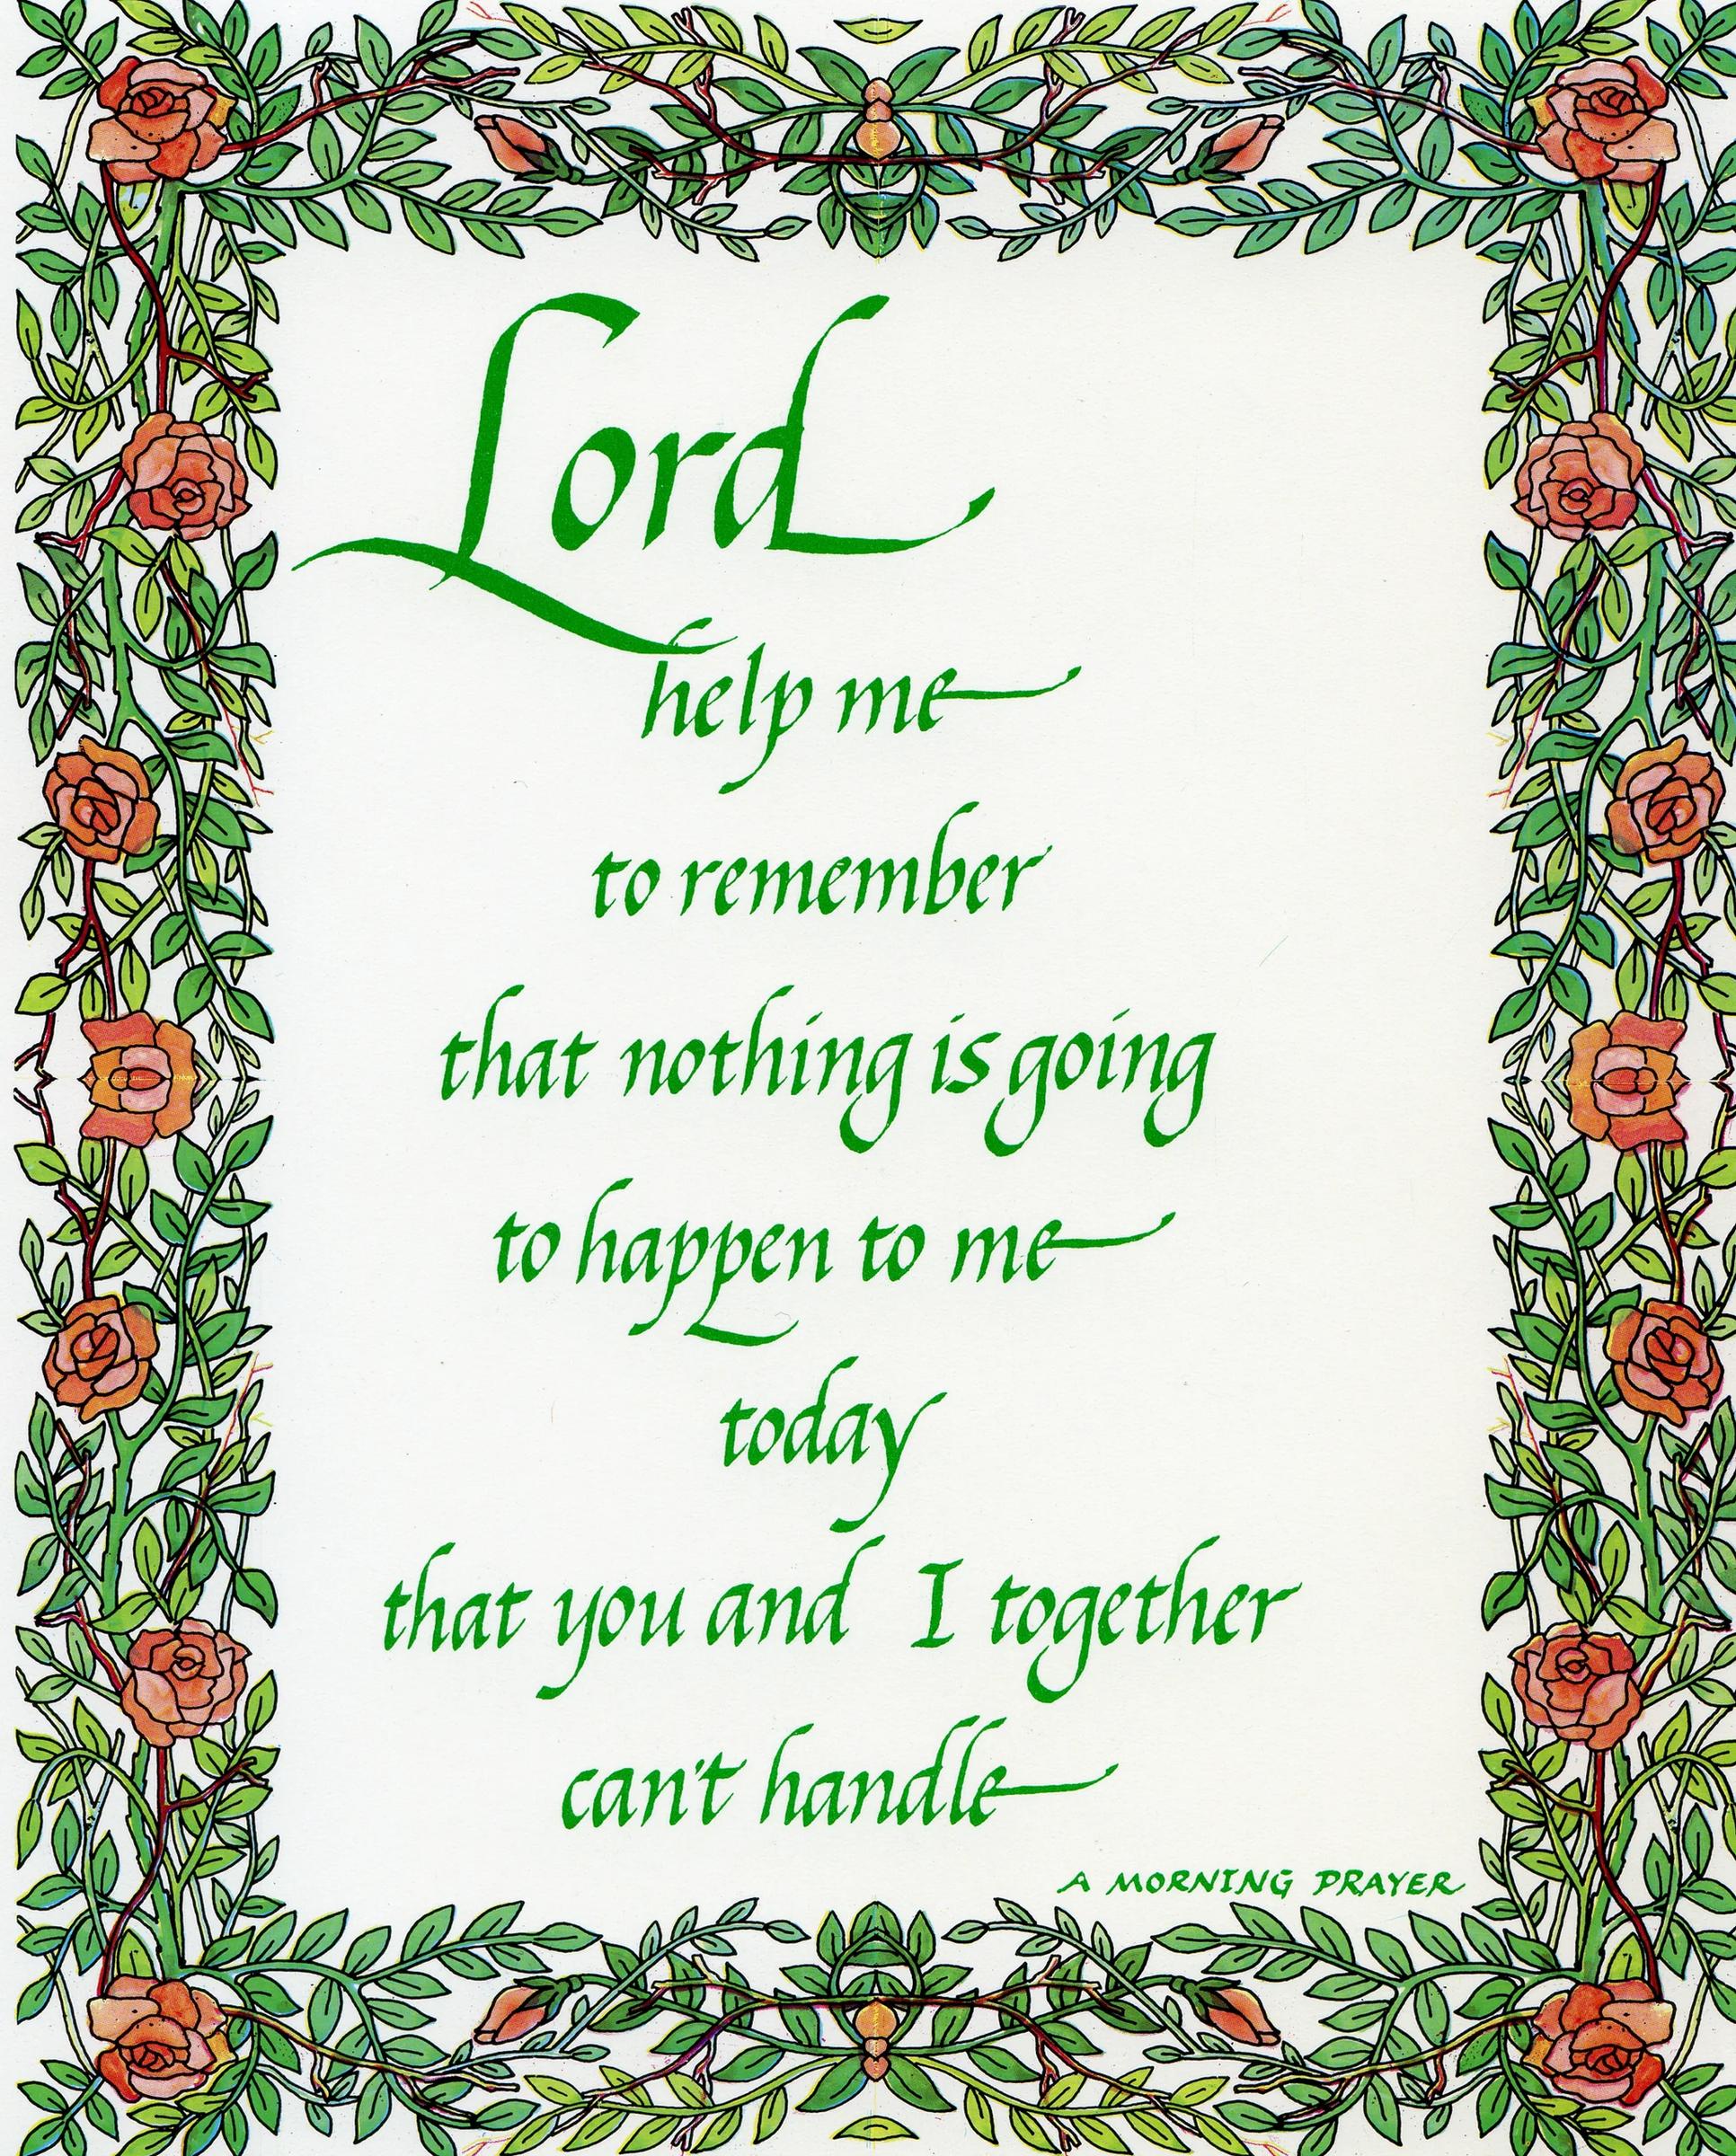 Lord
help me
to remember
that nothing is going
to happen to me
today
that you and I together
can't handle
A MORNING PRAYER